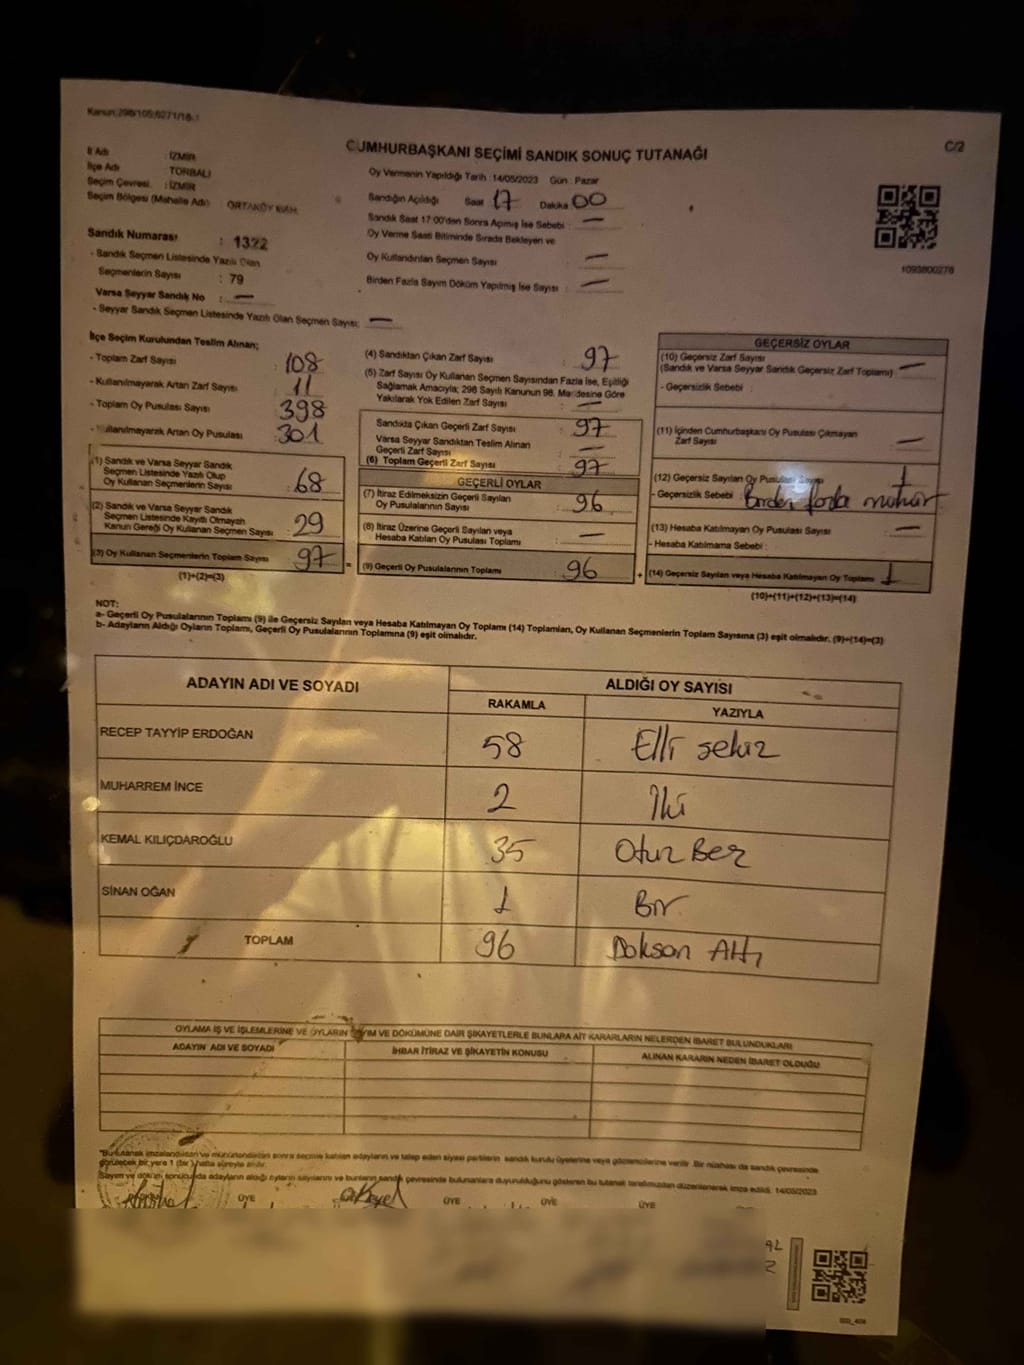 Kanun:298/105;6271/18-1
CUMHURBAŞKANI SEÇİMİ SANDIK SONUÇ TUTANAĞI
C/2
İl Adı : İZMİR
İlçe Adı : TORBALI
Seçim Çevresi : İZMİR
Seçim Bölgesi (Mahalle Adı) ORTAKÖY MAH.
Oy Vermenin Yapıldığı Tarih : 14/05/2023 Gün : Pazar
Sandığın Açıldığı Saat 17 Dakika 00
Sandık Saat 17:00'den Sonra Açımış İse Sebebi : —
Oy Verme Saati Bitiminde Sırada Bekleyen ve
Oy Kullandırılan Seçmen Sayısı : —
Birden Fazla Sayım Döküm Yapılmış İse Sayısı : —
1093800278
Sandık Numarası : 1322
- Sandık Seçmen Listesinde Yazılı Olan
Seçmenlerin Sayısı : 79
Varsa Seyyar Sandık No : —
- Seyyar Sandık Seçmen Listesinde Yazılı Olan Seçmen Sayısı: —
İlçe Seçim Kurulundan Teslim Alınan;
- Toplam Zarf Sayısı : 108
- Kullanılmayarak Artan Zarf Sayısı : 11
- Toplam Oy Pusulası Sayısı : 398
- Kullanılmayarak Artan Oy Pusulası : 301
(1) Sandık ve Varsa Seyyar Sandık
Seçmen Listesinde Yazılı Olup
Oy Kullanan Seçmenlerin Sayısı : 68
(2) Sandık ve Varsa Seyyar Sandık
Seçmen Listesinde Kayıtlı Olmayan
Kanun Gereği Oy Kullanan Seçmen Sayısı : 29
(3) Oy Kullanan Seçmenlerin Toplam Sayısı : 97
(1)+(2)=(3)
(4) Sandıktan Çıkan Zarf Sayısı : 97
(5) Zarf Sayısı Oy Kullanan Seçmen Sayısından Fazla İse, Eşitliği
Sağlamak Amacıyla; 298 Sayılı Kanunun 98. Maddesine Göre
Yakılarak Yok Edilen Zarf Sayısı : —
Sandıkta Çıkan Geçerli Zarf Sayısı : 97
Varsa Seyyar Sandıktan Teslim Alınan
Geçerli Zarf Sayısı : —
(6) Toplam Geçerli Zarf Sayısı : 97
GEÇERLİ OYLAR
(7) İtiraz Edilmeksizin Geçerli Sayılan
Oy Pusulalarının Sayısı : 96
(8) İtiraz Üzerine Geçerli Sayılan veya
Hesaba Katılan Oy Pusulası Toplamı : —
(9) Geçerli Oy Pusulalarının Toplamı : 96
GEÇERSİZ OYLAR
(10) Geçersiz Zarf Sayısı
(Sandık ve Varsa Seyyar Sandık Geçersiz Zarf Toplamı) : —
- Geçersizlik Sebebi :
(11) İçinden Cumhurbaşkanı Oy Pusulası Çıkmayan
Zarf Sayısı : —
(12) Geçersiz Sayılan Oy Pusulası Sayısı 1
- Geçersizlik Sebebi : Birden fazla mühür
(13) Hesaba Katılmayan Oy Pusulası Sayısı : —
- Hesaba Katılmama Sebebi :
(14) Geçersiz Sayılan veya Hesaba Katılmayan Oy Toplamı : 1
(10)+(11)+(12)+(13)=(14)
NOT:
a- Geçerli Oy Pusulalarının Toplamı (9) ile Geçersiz Sayılan veya Hesaba Katılmayan Oy Toplamı (14) Toplamları, Oy Kullanan Seçmenlerin Toplam Sayısına (3) eşit olmalıdır. (9)+(14)=(3)
b- Adayların Aldığı Oyların Toplamı, Geçerli Oy Pusulalarının Toplamına (9) eşit olmalıdır.
ADAYIN ADI VE SOYADI
ALDIĞI OY SAYISI
RAKAMLA YAZIYLA
RECEP TAYYİP ERDOĞAN 58 Elli sekiz
MUHARREM İNCE 2 İki
KEMAL KILIÇDAROĞLU 35 Otuz Beş
SİNAN OĞAN 1 Bir
TOPLAM 96 Doksan Altı
OYLAMA İŞ VE İŞLEMLERİNE VE OYLARIN SAYIM VE DÖKÜMÜNE DAİR ŞİKAYETLERLE BUNLARA AİT KARARLARIN NELERDEN İBARET BULUNDUKLARI
ADAYIN ADI VE SOYADI
İHBAR İTİRAZ VE ŞİKAYETİN KONUSU
ALINAN KARARIN NEDEN İBARET OLDUĞU
*Bu tutanak imzalandıktan ve mühürlendikten sonra seçime katılan adayların ve talep eden siyasi partilerin sandık kurulu üyelerine veya gözlemcilerine verilir. Bir nüshası da sandık çevresinde
görülecek bir yere 1 (bir) hafta süreyle asılır.
Sayım ve döküm sonucunda adayların aldığı oyların sayılarını ve bunların sandık çevresinde bulunanlara duyurulduğunu gösteren bu tutanak tarafımızdan düzenlenerek imza edildi. 14/05/2023
ÜYE ÜYE ÜYE ÜYE